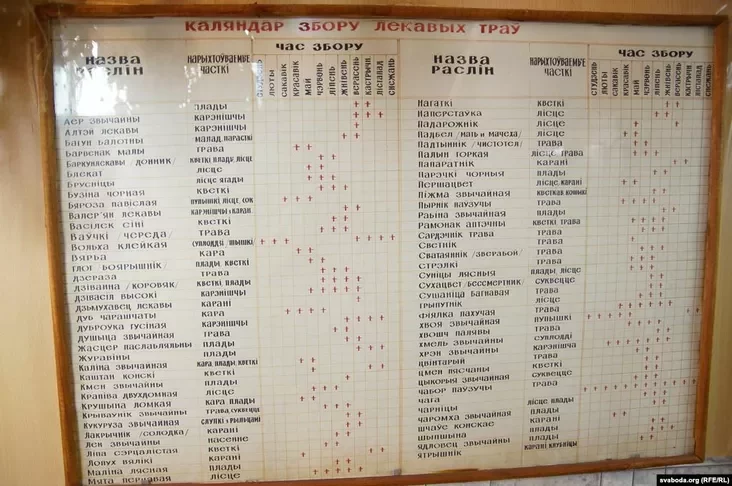 КАЛЯНДАР ЗБОРУ ЛЕКАВЫХ ТРАЎ
НАЗВА РАСЛІН
НАРЫХТОЎВАЕМЫЕ ЧАСТКІ
ЧАС ЗБОРУ
СТУДЗЕНЬ ЛЮТЫ САКАВІК КРАСАВІК МАЙ ЧЭРВЕНЬ ЛІПЕНЬ ЖНІВЕНЬ ВЕРАСЕНЬ КАСТРЫЧН ЛІСТАПАД СНЕЖАНЬ
ПЛАДЫ
АЕР ЗВЫЧАЙНЫ КАРЭНІШЧЫ
АЛТЭЙ ЛЕКАВЫ КАРЭНІШЧЫ
БАГУН БАЛОТНЫ МАЛАД. ПАРАСТКІ
БАРВЕНАК МАЛЫ ТРАВА
БАРКУНЛЕКАВЫ/ДОННИК/ КВЕТКІ ПЛАДЫ, ЛІСЦЕ
БЛЁКАТ ЛІСЦЕ
БРУСНІЦЫ ЛІСЦЕ ЯГАДЫ
БУЗІНА ЧОРНАЯ КВЕТКІ
БЯРОЗА ПАВІСЛАЯ ПУПЫШКІ, ЛІСЦЕ, СОК
ВАЛЕР'ЯН ЛЕКАВЫ КАРЭНІШЧЫ І КАРАН.
ВАСІЛЁК СІНІ КВЕТКІ
ВАЎЧКІ ЧЕРЕДА/ ТРАВА
ВОЛЬХА КЛЕЙКАЯ СУПЛОДДІ /ШЫШКІ/
ВЯРБА КАРА
ГЛОГ БОЯРЫШНІК/ ПЛАДЫ, КВЕТКІ
ДЗЕРАЗА ТРАВА
ДЗІВАННА/КОРОВЯК/ КВЕТКІ
ДЗІВАСІЛ ВЫСОКІ КАРЭНІШЧЫ
ДЗЬМУХАВЕЦ ЛЕКАВЫ КАРАНІ
ДУБ ЧАРАШЧАТЫ КАРА
ДУБРОЎКА ГУСІНАЯ КАРЭНІШЧЫ
ДУШЫЦА ЗВЫЧАЙНАЯ ТРАВА
ЖАСЦЕР ПАСЛАБЛЯЛЬНЫ ПЛАДЫ
ЖУРАВІНЫ ПЛАДЫ
КАЛІНА ЗВЫЧАЙНАЯ КАРА ПЛАДЫ, КВЕТКІ
КАШТАН КОНСКІ КВЕТКІ
КМЕН ЗВЫЧАЙНЫ ПЛАДЫ
КРАПІВА ДВУХДОМНАЯ ЛІСЦЕ
КРУШЫНА ЛОМКАЯ КАРА, ПЛАДЫ
КРЫВАЎНІК ЗВЫЧАЙНЫ ТРАВА, СУКВЕЦЦЕ
КУКУРУЗА ЗВЫЧАЙНАЯ
ЛАКРЫЧНІК /СОЛОДКА/ КАРАНІ
ЛЁН ЗВЫЧАЙНЫ НАСЕННЕ
ЛІПА СЭРЦАЛІСТАЯ КВЕТКІ
ЛОПУХ ВЯЛІКІ КАРАНІ
МАЛІНА ЛЯСНАЯ ПЛАДЫ
МЯТА ПЕРЦАВАЯ ЛІСЦЕ
НАЗВА РАСЛІН
НАРЫХТОЎВАЕМЫЕ ЧАСТКІ
ЧАС ЗБОРУ
СТУДЗЕНЬ ЛЮТЫ САКАВІК КРАСАВІК МАЙ ЧЭРВЕНЬ ЛІПЕНЬ ЖНІВЕНЬ ВЕРАСЕНЬ КАСТРЫЧН ЛІСТАПАД СНЕЖАНЬ
НАГАТКІ КВЕТКІ
НАПЕРСТАЎКА ЛІСЦЕ
ПАДАРОЖНІК ЛІСЦЕ
ПАДБЕЛ /МАЦЬ И МАЧЕХА/ ЛІСЦЕ
ПАДТЫННІК /ЧИСТОТЕЛ/ ТРАВА
ПАЛЫН ГОРКАЯ ЛІСЦЕ, ТРАВА
ПАПАРАТНІК КАРАНІ
ПАРЭЧКІ ЧОРНЫЯ ЛІСЦЕ
ПЕРШАЦВЕТ ЛІСЦЕ, КАРАНІ
ПІЖМА ЗВЫЧАЙНАЯ
ПЫРНІК ПАЎЗУЧЫ ТРАВА
РАБІНА ЗВЫЧАЙНАЯ ПЛАДЫ
РАМОНАК АПТЭЧНЫ КВЕТКІ ТРАВА
САРДЭЧНІК ТРАВА ТРАВА
СВЕТНІК ТРАВА
СВАТАЯННІК /ЗВЕРАБОЙ/ ТРАВА
СТРЭЛКІ ТРАВА
СУНІЦЫ ЛЯСНЫЯ ПЛАДЫ, ЛІСЦЕ
СУХАЦВЕТ/БЕССМЕРТНИК/ СУКВЕЦЦЕ
СУШАНІЦА БАГНАВАЯ ТРАВА
ТРЫПУТНІК ЛІСЦЕ
ФІЯЛКА ПАХУЧАЯ ТРАВА
ХВОЯ ЗВЫЧАЙНАЯ ПУПЫШКІ
ХВОШЧ ПАЛЯВЫ ТРАВА
ХМЕЛЬ ЗВЫЧАЙНЫ СУПЛОДДІ
ХРЭН ЗВЫЧАЙНЫ КАРЭНІШЧА
ЦВІНТАРЫЙ ТРАВА
ЦМЕН ПЯСЧАНЫ КВЕТКІ
ЦЫКОРЫЯ ЗВЫЧАЙНАЯ СУКВЕЦЦЕ
ЧАБОР ПАЎЗУЧЫ ТРАВА
ЧАГА
ЧАРНІЦЫ ЛІСЦЕ, ПЛАДЫ
ЧАРОМХА ЗВЫЧАЙНАЯ ПЛАДЫ
ШЧАЎЕ КОНСКАЕ КАРАНІ
ШЫПШЫНА ПЛАДЫ
ЯДЛОВЕЦ ЗВЫЧАЙНЫ ПЛАДЫ
ЯТРЫШНІК КАРАНІ КЛУБНІЦЫ
svaboda.org (RFE/RL)